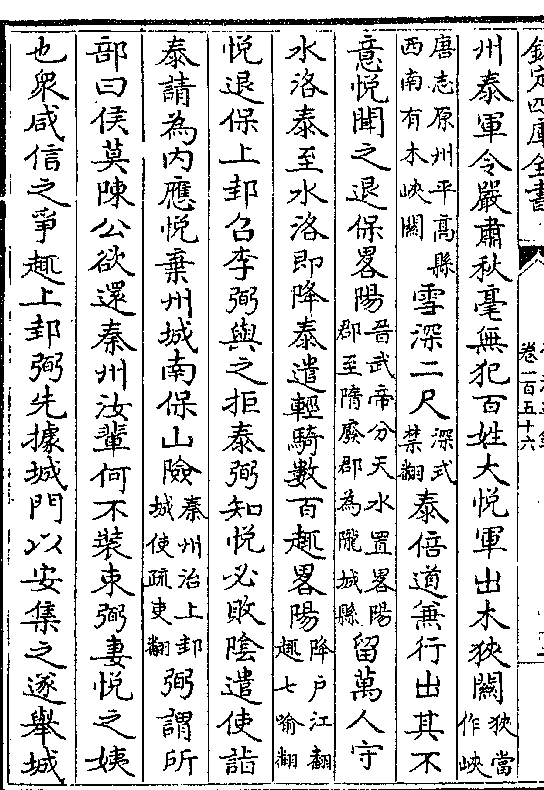 欽定四庫全書
卷一百五十六
州泰軍令嚴肅秋毫無犯百姓大悅軍出木狹關狹當作峽
唐志原州平高縣西南有木峽關雪深二尺深式禁翻泰倍道兼行出其不
意悅聞之退保畧陽晉武帝分天水置畧陽郡至隋廢郡為隴城縣留萬人守
水洛泰至水洛即降泰遣輕騎數百趣畧陽降戶江翻趣七喻翻
悅退保上邽召李弼與之拒泰弼知悅必敗陰遣使詣
泰請為內應悅棄州城南保山險秦州治上邽城使疏吏翻弼謂所
部曰侯莫陳公欲還秦州汝輩何不裝束弼妻悅之姨
也衆咸信之爭趣上邽弼先據城門以安集之遂舉城